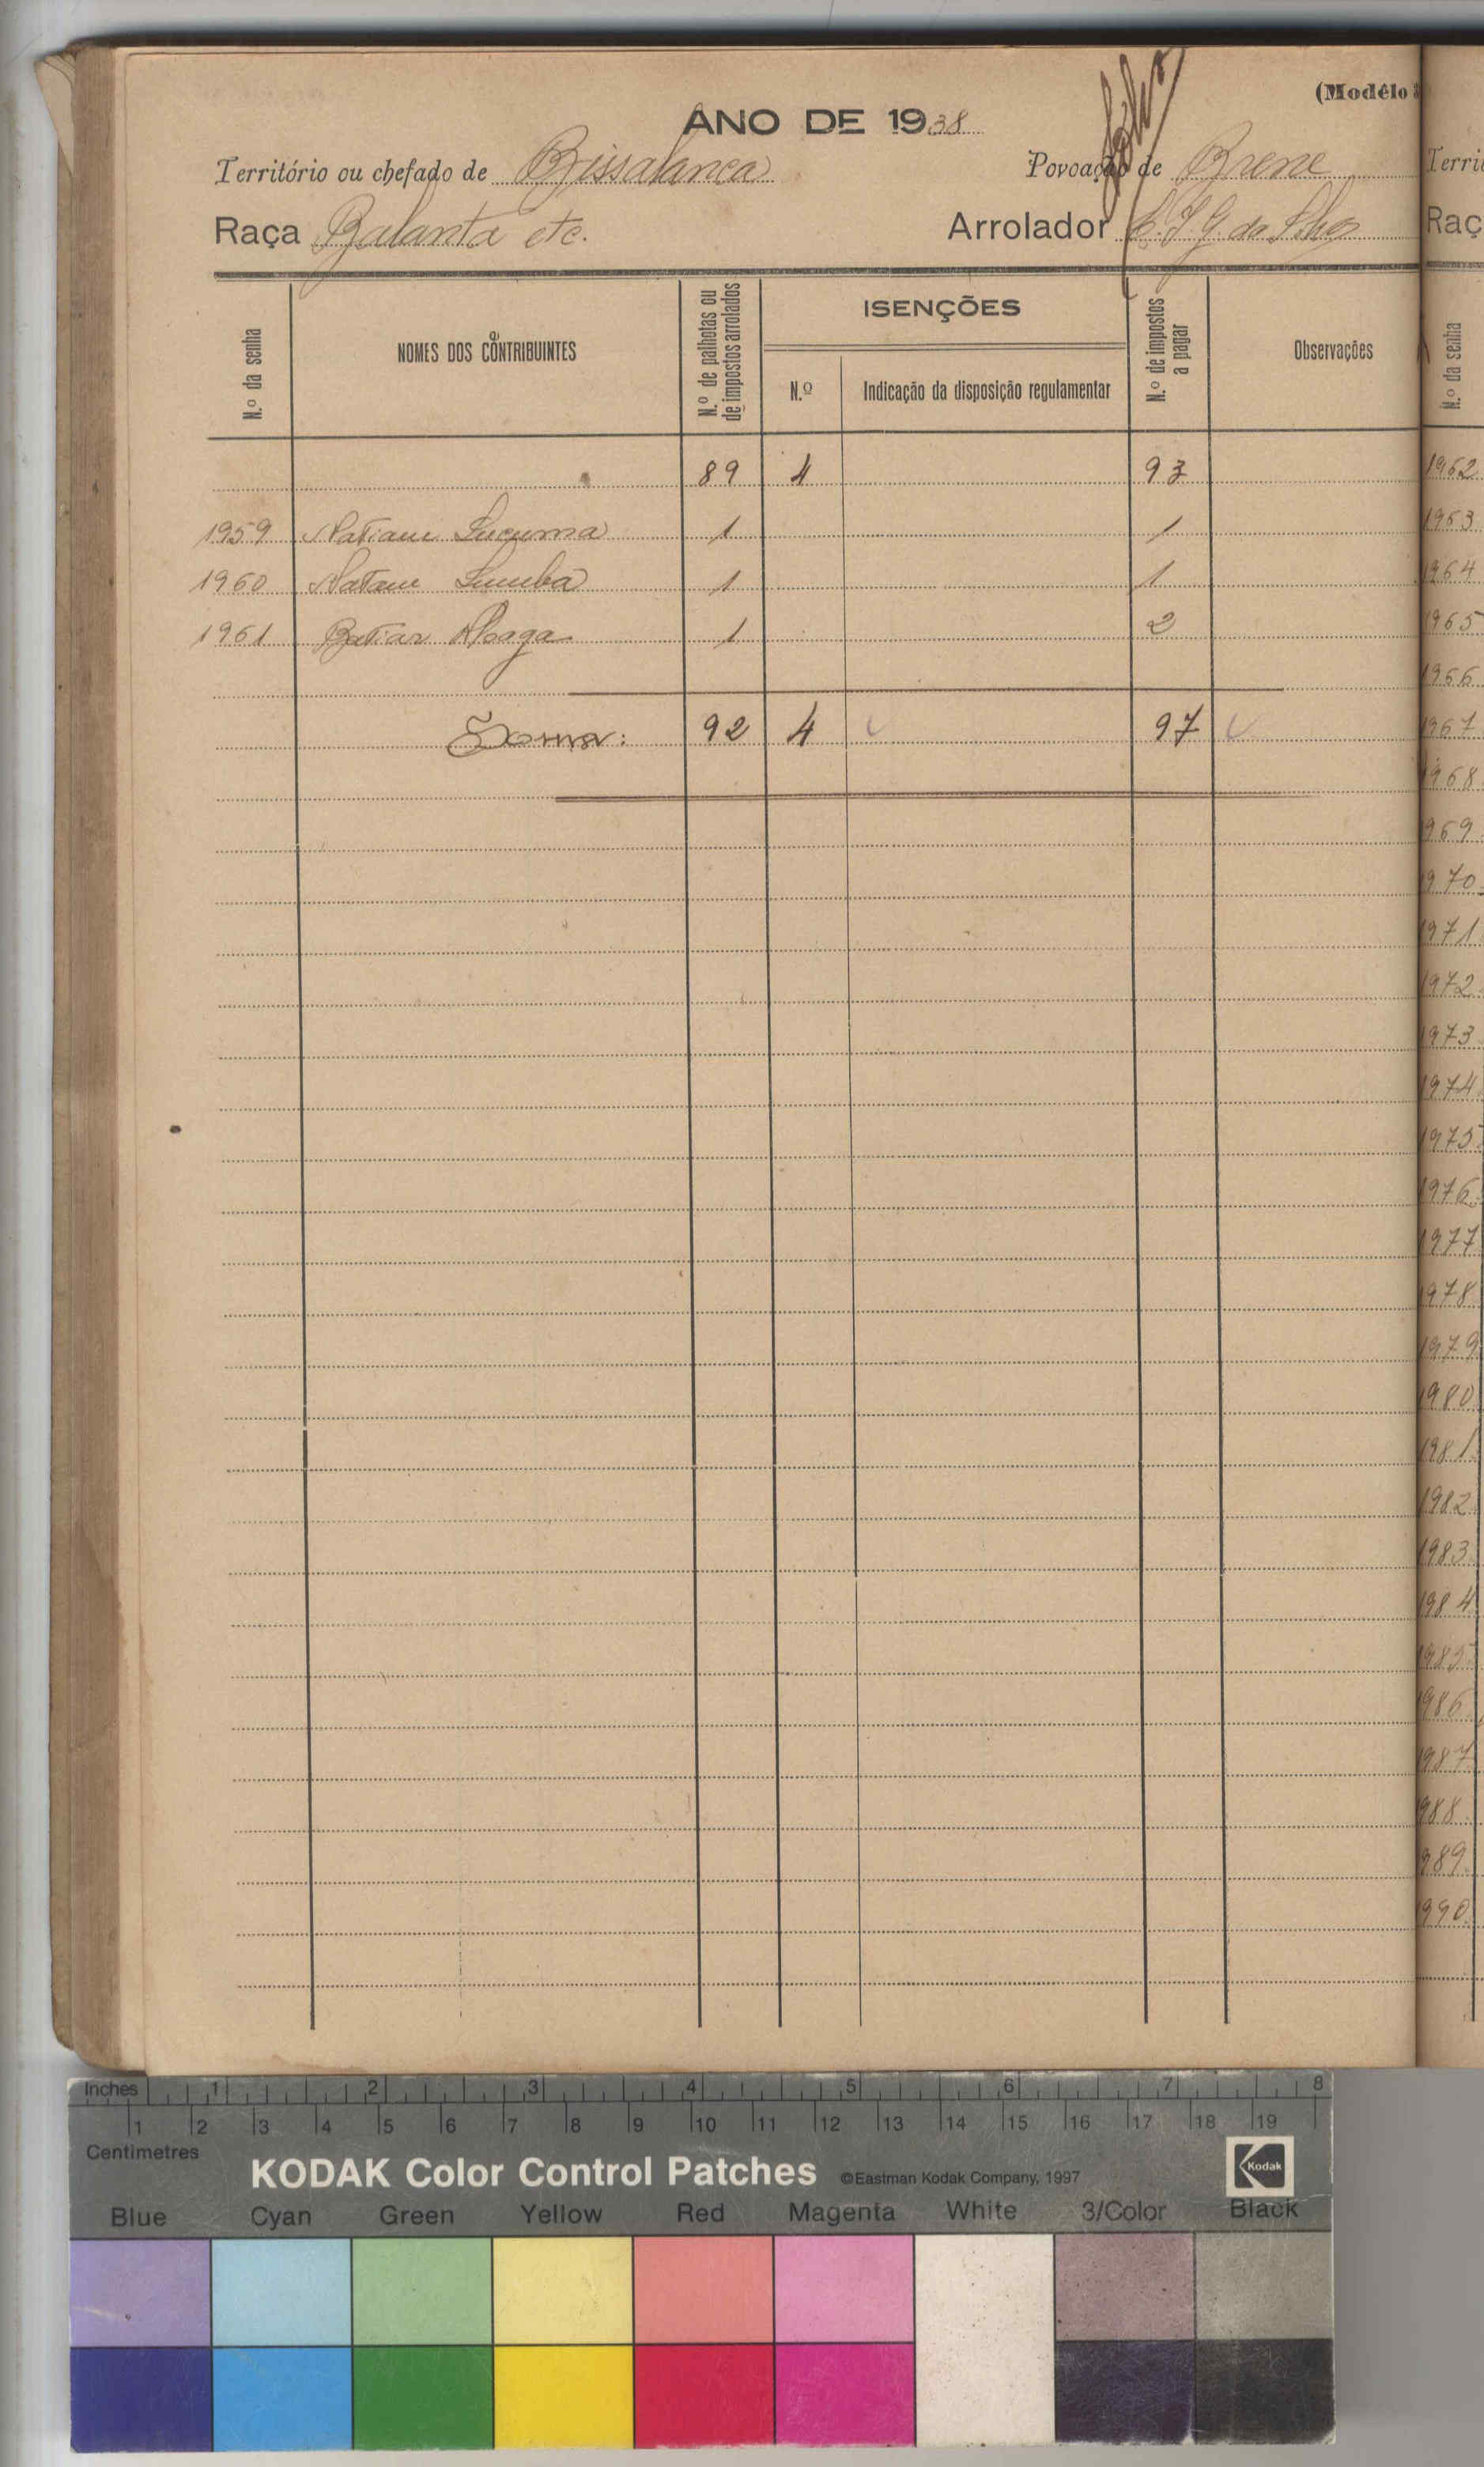 (Modêlo
ANO DE 1938
Território ou chefado de Bissalanca Povoação de Brene
Raça Balanta etc. Arrolador
N.º da senha NOMES DOS CONTRIBUINTES N.º de palhotas ou de impostos arrolados ISENÇÕES N.º Indicação da disposição regulamentar N.º de impostos a pagar Observações
89 4 93
1959 1 1
1960 1 1
1961 1 2
Soma: 92 4 97
Terri
Raç
N.º da senha
1962
1963
1964
1965
1966
1967
1968
969
970
971
972
973
974
975
976
977
978
979
980
981
982
983
984
985
986
987
988
989
990
Inches 1 2 3 4 5 6 7 8
1 2 3 4 5 6 7 8 9 10 11 12 13 14 15 16 17 18 19
Centimetres
KODAK Color Control Patches ©Eastman Kodak Company, 1997 Kodak
Blue Cyan Green Yellow Red Magenta White 3/Color Black